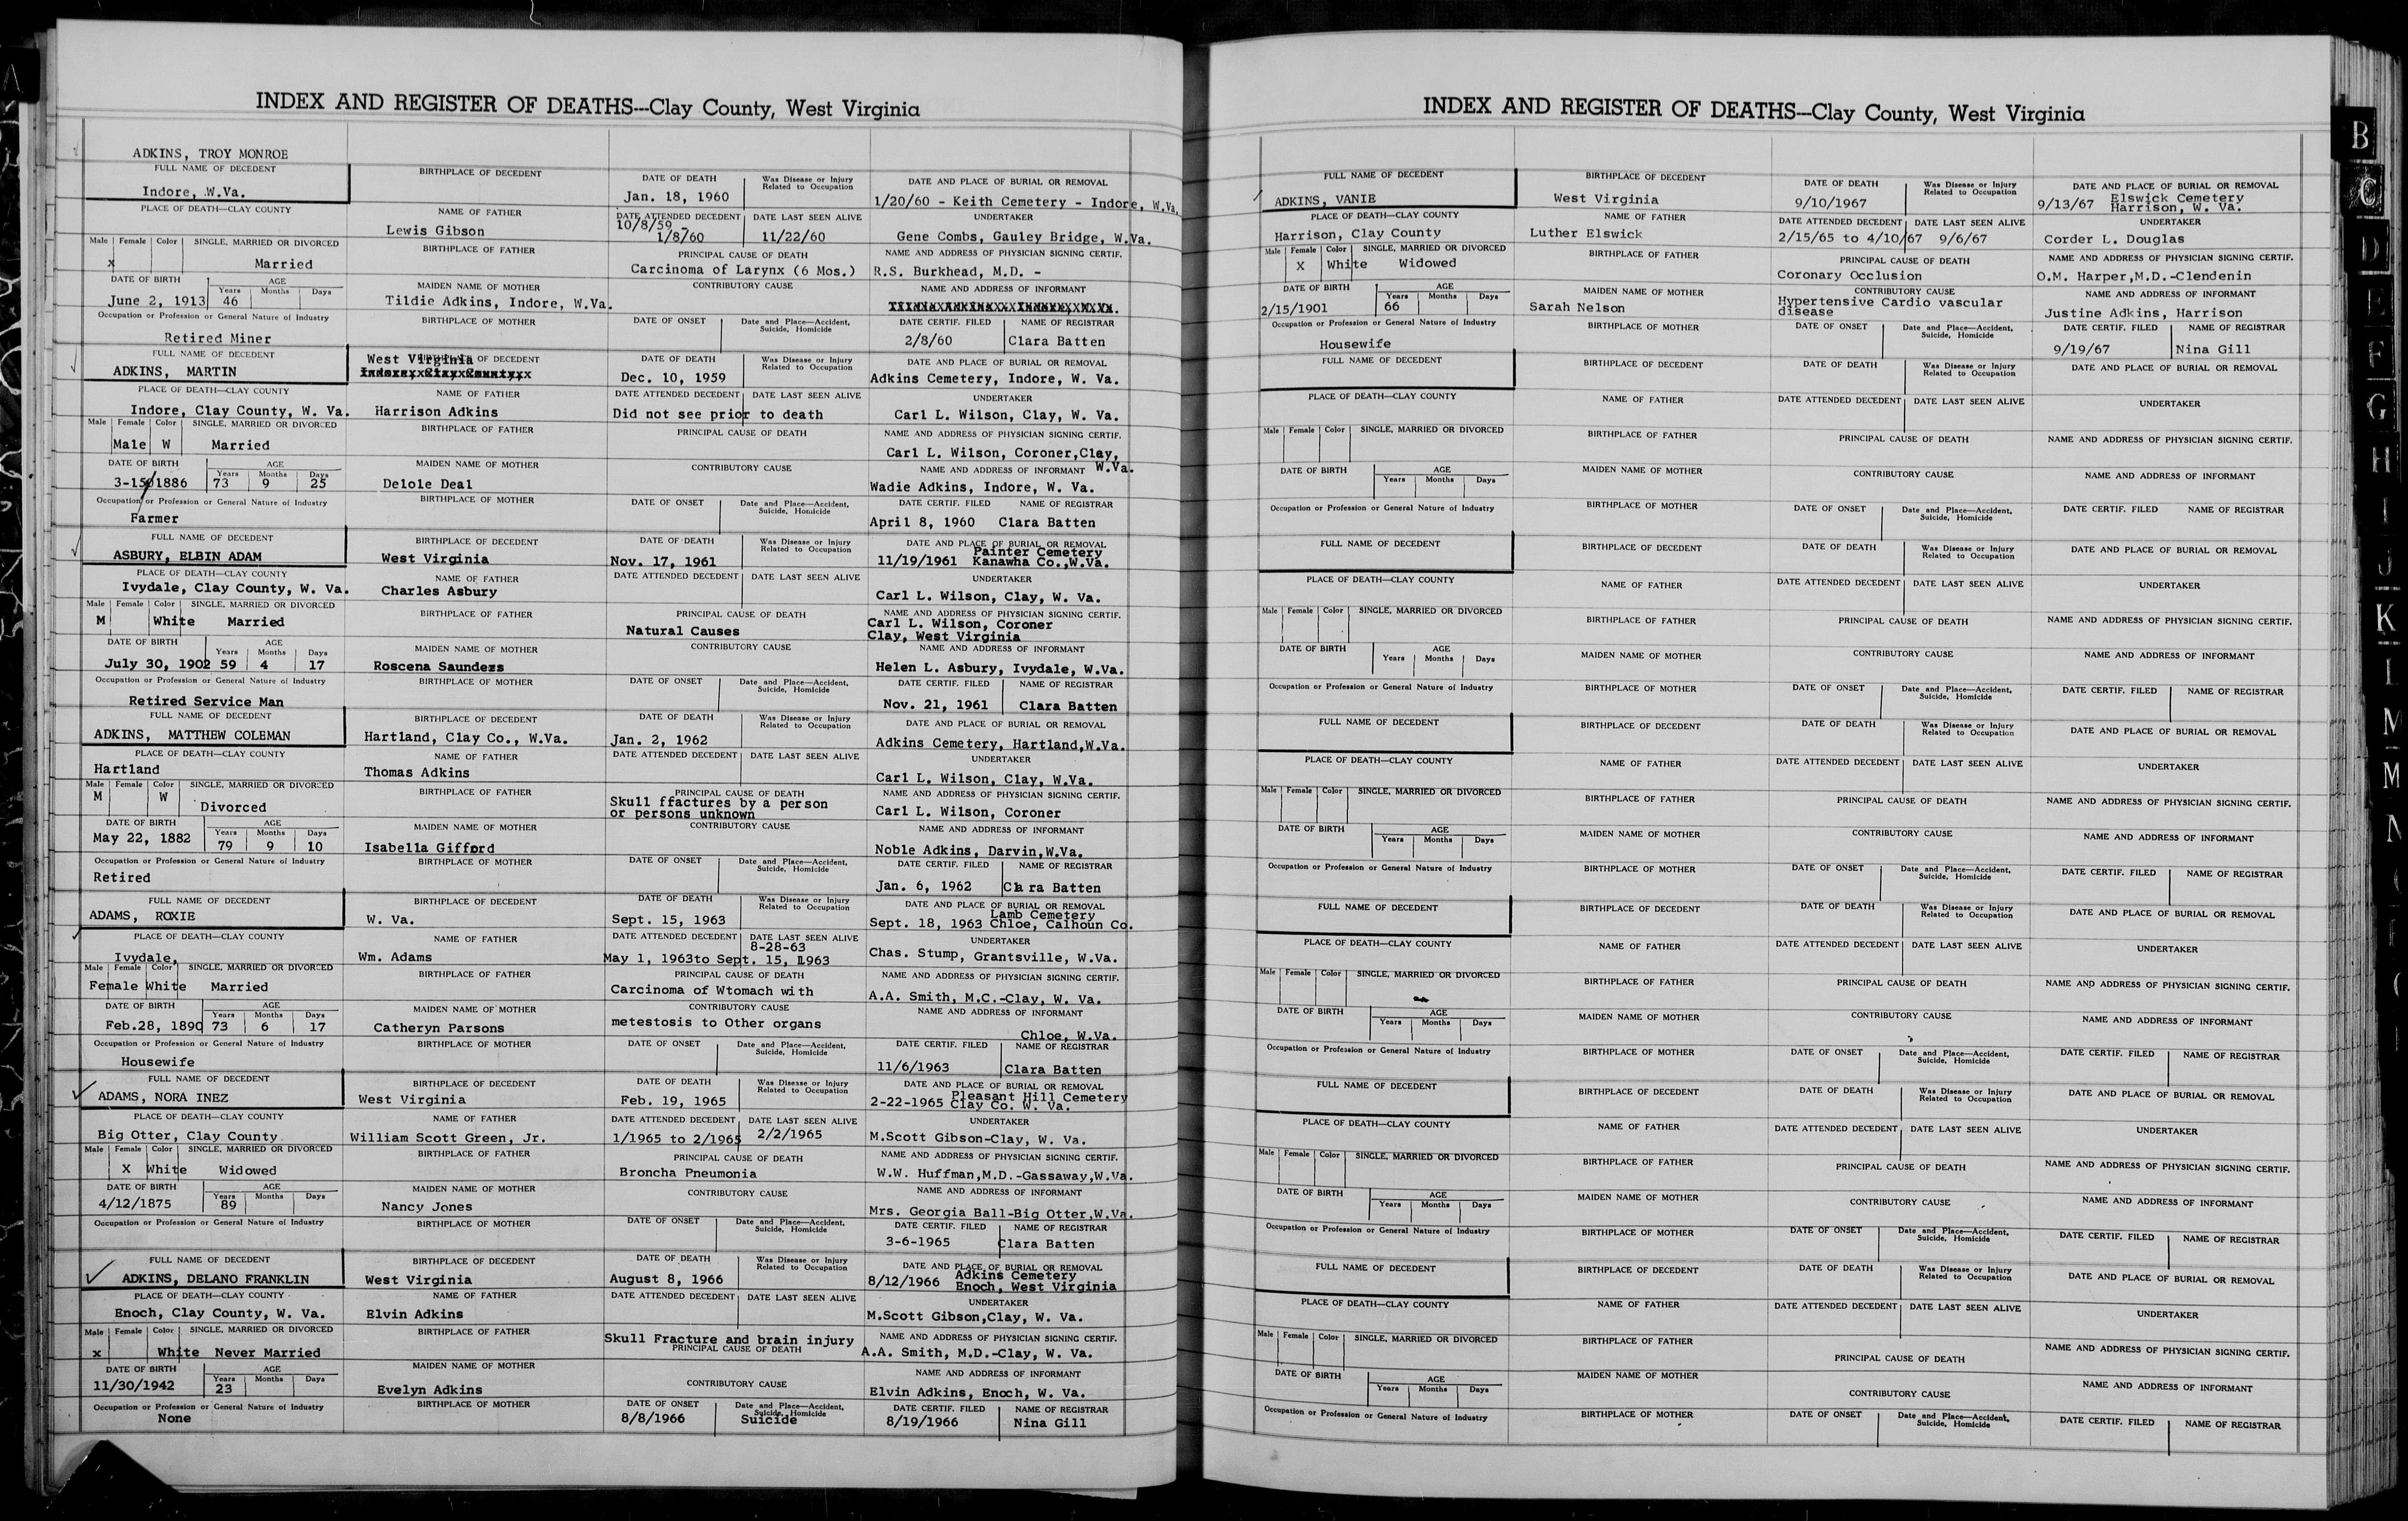 INDEX AND REGISTER OF DEATHS---Clay County, West Virginia
ADKINS, TROY MONROE
FULL NAME OF DECEDENT BIRTHPLACE OF DECEDENT DATE OF DEATH Was Disease or Injury Related to Occupation DATE AND PLACE OF BURIAL OR REMOVAL
Indore, W.Va. Jan. 18, 1960 1/20/60 - Keith Cemetery - Indore, W.Va.
PLACE OF DEATH—CLAY COUNTY NAME OF FATHER DATE ATTENDED DECEDENT DATE LAST SEEN ALIVE UNDERTAKER
Lewis Gibson 10/8/59 - 1/8/60 11/22/60 Gene Combs, Gauley Bridge, W.Va.
Male Female Color SINGLE, MARRIED OR DIVORCED BIRTHPLACE OF FATHER PRINCIPAL CAUSE OF DEATH NAME AND ADDRESS OF PHYSICIAN SIGNING CERTIF.
x Married Carcinoma of Larynx (6 Mos.) R.S. Burkhead, M.D. -
DATE OF BIRTH AGE Years Months Days MAIDEN NAME OF MOTHER CONTRIBUTORY CAUSE NAME AND ADDRESS OF INFORMANT
June 2, 1913 46 Tildie Adkins, Indore, W.Va.
Occupation or Profession or General Nature of Industry BIRTHPLACE OF MOTHER DATE OF ONSET Date and Place—Accident, Suicide, Homicide DATE CERTIF. FILED NAME OF REGISTRAR
Retired Miner 2/8/60 Clara Batten
FULL NAME OF DECEDENT BIRTHPLACE OF DECEDENT DATE OF DEATH Was Disease or Injury Related to Occupation DATE AND PLACE OF BURIAL OR REMOVAL
ADKINS, MARTIN West Virginia Dec. 10, 1959 Adkins Cemetery, Indore, W. Va.
PLACE OF DEATH—CLAY COUNTY NAME OF FATHER DATE ATTENDED DECEDENT DATE LAST SEEN ALIVE UNDERTAKER
Indore, Clay County, W. Va. Harrison Adkins Did not see prior to death Carl L. Wilson, Clay, W. Va.
Male Female Color SINGLE, MARRIED OR DIVORCED BIRTHPLACE OF FATHER PRINCIPAL CAUSE OF DEATH NAME AND ADDRESS OF PHYSICIAN SIGNING CERTIF.
Male W Married Carl L. Wilson, Coroner,Clay, W.Va.
DATE OF BIRTH AGE Years Months Days MAIDEN NAME OF MOTHER CONTRIBUTORY CAUSE NAME AND ADDRESS OF INFORMANT
3-15/1886 73 9 25 Delole Deal Wadie Adkins, Indore, W. Va.
Occupation or Profession or General Nature of Industry BIRTHPLACE OF MOTHER DATE OF ONSET Date and Place—Accident, Suicide, Homicide DATE CERTIF. FILED NAME OF REGISTRAR
Farmer April 8, 1960 Clara Batten
FULL NAME OF DECEDENT BIRTHPLACE OF DECEDENT DATE OF DEATH Was Disease or Injury Related to Occupation DATE AND PLACE OF BURIAL OR REMOVAL
ASBURY, ELBIN ADAM West Virginia Nov. 17, 1961 11/19/1961 Painter Cemetery Kanawha Co.,W.Va.
PLACE OF DEATH—CLAY COUNTY NAME OF FATHER DATE ATTENDED DECEDENT DATE LAST SEEN ALIVE UNDERTAKER
Ivydale, Clay County, W. Va. Charles Asbury Carl L. Wilson, Clay, W. Va.
Male Female Color SINGLE, MARRIED OR DIVORCED BIRTHPLACE OF FATHER PRINCIPAL CAUSE OF DEATH NAME AND ADDRESS OF PHYSICIAN SIGNING CERTIF.
M White Married Natural Causes Carl L. Wilson, Coroner Clay, West Virginia
DATE OF BIRTH AGE Years Months Days MAIDEN NAME OF MOTHER CONTRIBUTORY CAUSE NAME AND ADDRESS OF INFORMANT
July 30, 1902 59 4 17 Roscena Saunders Helen L. Asbury, Ivydale, W.Va.
Occupation or Profession or General Nature of Industry BIRTHPLACE OF MOTHER DATE OF ONSET Date and Place—Accident, Suicide, Homicide DATE CERTIF. FILED NAME OF REGISTRAR
Retired Service Man Nov. 21, 1961 Clara Batten
FULL NAME OF DECEDENT BIRTHPLACE OF DECEDENT DATE OF DEATH Was Disease or Injury Related to Occupation DATE AND PLACE OF BURIAL OR REMOVAL
ADKINS, MATTHEW COLEMAN Hartland, Clay Co., W.Va. Jan. 2, 1962 Adkins Cemetery, Hartland,W.Va.
PLACE OF DEATH—CLAY COUNTY NAME OF FATHER DATE ATTENDED DECEDENT DATE LAST SEEN ALIVE UNDERTAKER
Hartland Thomas Adkins Carl L. Wilson, Clay, W.Va.
Male Female Color SINGLE, MARRIED OR DIVORCED BIRTHPLACE OF FATHER PRINCIPAL CAUSE OF DEATH NAME AND ADDRESS OF PHYSICIAN SIGNING CERTIF.
M W Divorced Skull ffactures by a person or persons unknown Carl L. Wilson, Coroner
DATE OF BIRTH AGE Years Months Days MAIDEN NAME OF MOTHER CONTRIBUTORY CAUSE NAME AND ADDRESS OF INFORMANT
May 22, 1882 79 9 10 Isabella Gifford Noble Adkins, Darvin,W.Va.
Occupation or Profession or General Nature of Industry BIRTHPLACE OF MOTHER DATE OF ONSET Date and Place—Accident, Suicide, Homicide DATE CERTIF. FILED NAME OF REGISTRAR
Retired Jan. 6, 1962 Clara Batten
FULL NAME OF DECEDENT BIRTHPLACE OF DECEDENT DATE OF DEATH Was Disease or Injury Related to Occupation DATE AND PLACE OF BURIAL OR REMOVAL
ADAMS, ROXIE W. Va. Sept. 15, 1963 Sept. 18, 1963 Lamb Cemetery Chloe, Calhoun Co.
PLACE OF DEATH—CLAY COUNTY NAME OF FATHER DATE ATTENDED DECEDENT DATE LAST SEEN ALIVE UNDERTAKER
Ivydale, Wm. Adams May 1, 1963to Sept. 15, 1963 8-28-63 Chas. Stump, Grantsville, W.Va.
Male Female Color SINGLE, MARRIED OR DIVORCED BIRTHPLACE OF FATHER PRINCIPAL CAUSE OF DEATH NAME AND ADDRESS OF PHYSICIAN SIGNING CERTIF.
Female White Married Carcinoma of Wtomach with A.A. Smith, M.C.-Clay, W. Va.
DATE OF BIRTH AGE Years Months Days MAIDEN NAME OF MOTHER CONTRIBUTORY CAUSE NAME AND ADDRESS OF INFORMANT
Feb.28, 1890 73 6 17 Catheryn Parsons metestosis to Other organs Chloe, W.Va.
Occupation or Profession or General Nature of Industry BIRTHPLACE OF MOTHER DATE OF ONSET Date and Place—Accident, Suicide, Homicide DATE CERTIF. FILED NAME OF REGISTRAR
Housewife 11/6/1963 Clara Batten
FULL NAME OF DECEDENT BIRTHPLACE OF DECEDENT DATE OF DEATH Was Disease or Injury Related to Occupation DATE AND PLACE OF BURIAL OR REMOVAL
ADAMS, NORA INEZ West Virginia Feb. 19, 1965 2-22-1965 Pleasant Hill Cemetery Clay Co. W. Va.
PLACE OF DEATH—CLAY COUNTY NAME OF FATHER DATE ATTENDED DECEDENT DATE LAST SEEN ALIVE UNDERTAKER
Big Otter, Clay County William Scott Green, Jr. 1/1965 to 2/1965 2/2/1965 M.Scott Gibson-Clay, W. Va.
Male Female Color SINGLE, MARRIED OR DIVORCED BIRTHPLACE OF FATHER PRINCIPAL CAUSE OF DEATH NAME AND ADDRESS OF PHYSICIAN SIGNING CERTIF.
X White Widowed Broncha Pneumonia W.W. Huffman,M.D.-Gassaway,W.Va.
DATE OF BIRTH AGE Years Months Days MAIDEN NAME OF MOTHER CONTRIBUTORY CAUSE NAME AND ADDRESS OF INFORMANT
4/12/1875 89 Nancy Jones Mrs. Georgia Ball-Big Otter,W.Va.
Occupation or Profession or General Nature of Industry BIRTHPLACE OF MOTHER DATE OF ONSET Date and Place—Accident, Suicide, Homicide DATE CERTIF. FILED NAME OF REGISTRAR
3-6-1965 Clara Batten
FULL NAME OF DECEDENT BIRTHPLACE OF DECEDENT DATE OF DEATH Was Disease or Injury Related to Occupation DATE AND PLACE OF BURIAL OR REMOVAL
ADKINS, DELANO FRANKLIN West Virginia August 8, 1966 8/12/1966 Adkins Cemetery Enoch, West Virginia
PLACE OF DEATH—CLAY COUNTY NAME OF FATHER DATE ATTENDED DECEDENT DATE LAST SEEN ALIVE UNDERTAKER
Enoch, Clay County, W. Va. Elvin Adkins M.Scott Gibson,Clay, W. Va.
Male Female Color SINGLE, MARRIED OR DIVORCED BIRTHPLACE OF FATHER PRINCIPAL CAUSE OF DEATH NAME AND ADDRESS OF PHYSICIAN SIGNING CERTIF.
x White Never Married Skull Fracture and brain injury A.A. Smith, M.D.-Clay, W. Va.
DATE OF BIRTH AGE Years Months Days MAIDEN NAME OF MOTHER CONTRIBUTORY CAUSE NAME AND ADDRESS OF INFORMANT
11/30/1942 23 Evelyn Adkins Elvin Adkins, Enoch, W. Va.
Occupation or Profession or General Nature of Industry BIRTHPLACE OF MOTHER DATE OF ONSET Date and Place—Accident, Suicide, Homicide DATE CERTIF. FILED NAME OF REGISTRAR
None 8/8/1966 Suicide 8/19/1966 Nina Gill
INDEX AND REGISTER OF DEATHS---Clay County, West Virginia
FULL NAME OF DECEDENT BIRTHPLACE OF DECEDENT DATE OF DEATH Was Disease or Injury Related to Occupation DATE AND PLACE OF BURIAL OR REMOVAL
ADKINS, VANIE West Virginia 9/10/1967 9/13/67 Elswick Cemetery Harrison, W. Va.
PLACE OF DEATH—CLAY COUNTY NAME OF FATHER DATE ATTENDED DECEDENT DATE LAST SEEN ALIVE UNDERTAKER
Harrison, Clay County Luther Elswick 2/15/65 to 4/10/67 9/6/67 Corder L. Douglas
Male Female Color SINGLE, MARRIED OR DIVORCED BIRTHPLACE OF FATHER PRINCIPAL CAUSE OF DEATH NAME AND ADDRESS OF PHYSICIAN SIGNING CERTIF.
X White Widowed Coronary Occlusion O.M. Harper,M.D.-Clendenin
DATE OF BIRTH AGE Years Months Days MAIDEN NAME OF MOTHER CONTRIBUTORY CAUSE NAME AND ADDRESS OF INFORMANT
2/15/1901 66 Sarah Nelson Hypertensive Cardio vascular disease Justine Adkins, Harrison
Occupation or Profession or General Nature of Industry BIRTHPLACE OF MOTHER DATE OF ONSET Date and Place—Accident, Suicide, Homicide DATE CERTIF. FILED NAME OF REGISTRAR
Housewife 9/19/67 Nina Gill
B
C
D
E
F
G
H
I
J
K
L
M